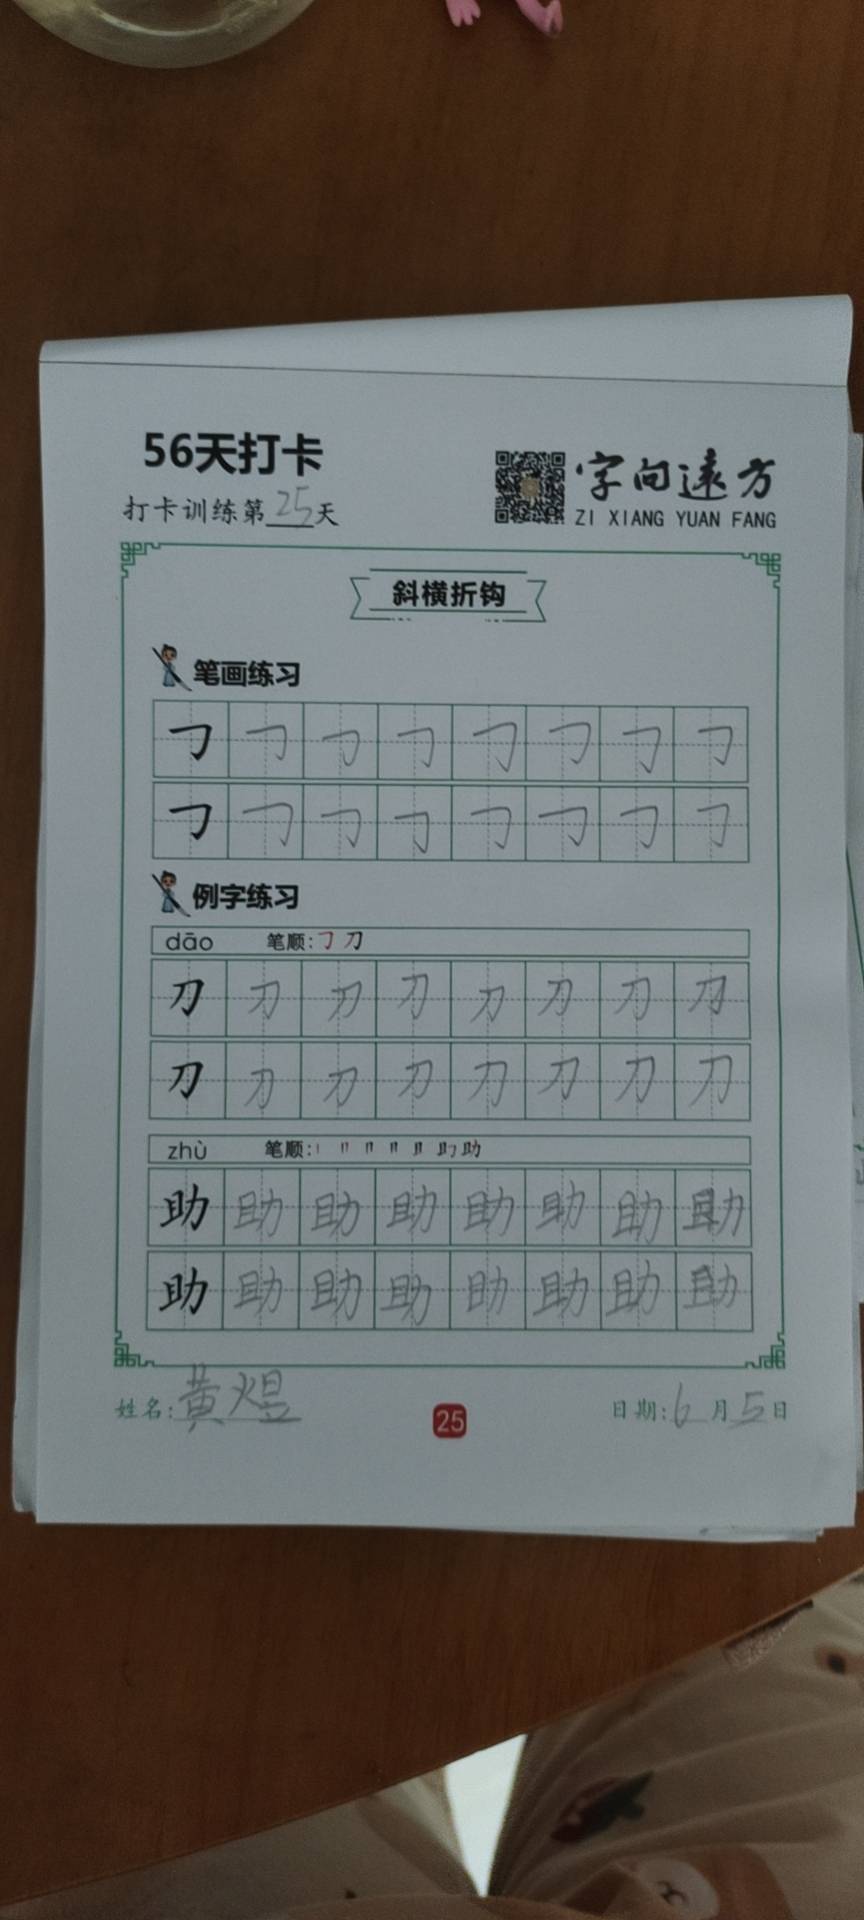 56天打卡
打卡训练第25天
字向远方
ZI XIANG YUAN FANG
斜横折钩
笔画练习
㇆ ㇆ ㇆ ㇆ ㇆ ㇆ ㇆ ㇆
㇆ ㇆ ㇆ ㇆ ㇆ ㇆ ㇆ ㇆
例字练习
dāo 笔顺:㇆ 刀
刀 刀 刀 刀 刀 刀 刀 刀
刀 刀 刀 刀 刀 刀 刀 刀
zhù 笔顺: 助
助 助 助 助 助 助 助 助
助 助 助 助 助 助 助 助
姓名:黄煜
25
日期:6月5日